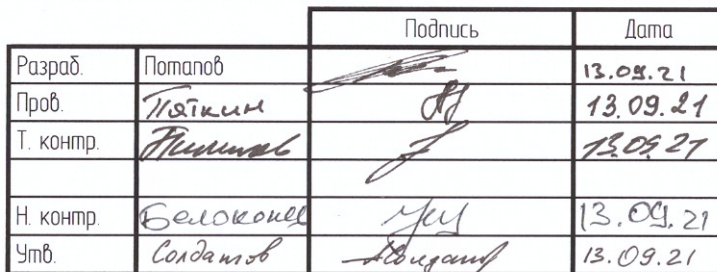 Подпись Дата
Разраб. Потапов 13.09.21
Пров. Пяткин 13.09.21
Т. контр. 13.09.21
Н. контр. Белоконец 13.09.21
Утв. Солдатов 13.09.21